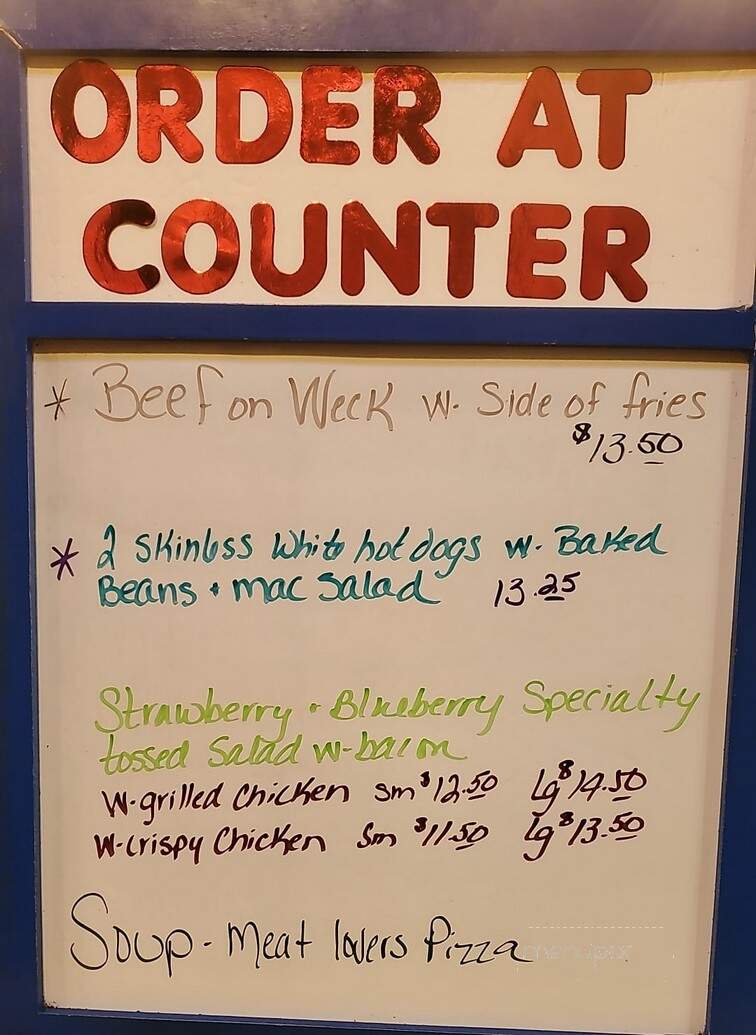 ORDER AT
COUNTER
* Beef on Weck w. Side of fries
$13.50
* 2 skinless white hot dogs w. Baked
Beans + mac salad 13.25
Strawberry + Blueberry Specialty
tossed Salad w-bacon
w-grilled chicken sm $12.50 Lg $14.50
w-crispy Chicken sm $11.50 Lg $13.50
Soup - Meat lovers Pizza
menupix